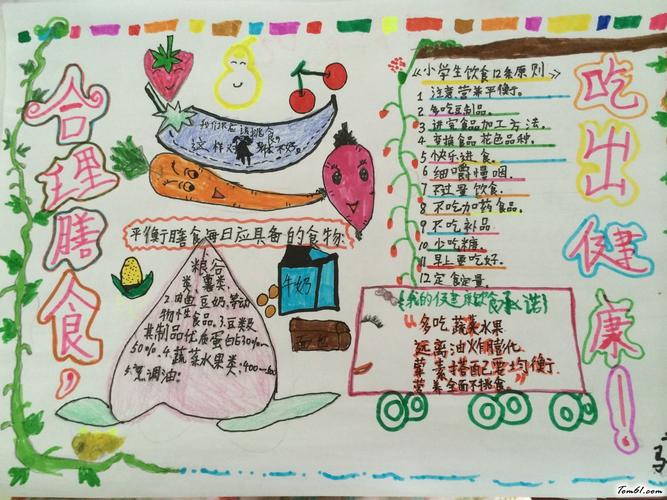 合理膳食,
吃出健康!
我们不应该挑食,
这样对身体不好。
平衡膳食每日应具备的食物:
1.粮谷
类、薯类,
物性食品。3.豆类及
其制品优质蛋白占30%—
50%。4.蔬菜水果类:400—
5.烹调油。
牛奶
面包
《小学生饮食12条原则》
1 注意营养平衡。
2 多吃豆制品。
3 讲究食品加工方法。
4 变换食品花色品种。
5 快乐进食。
6 细嚼慢咽。
7 不过量饮食。
8 不吃加药食品。
9 不吃补品。
10 少吃糖。
11 早上要吃好。
12 定食定量。
我的健康饮食承诺
"多吃蔬菜水果
远离油炸膨化
荤素搭配要均衡
营养全面不挑食。"
Tom61.com